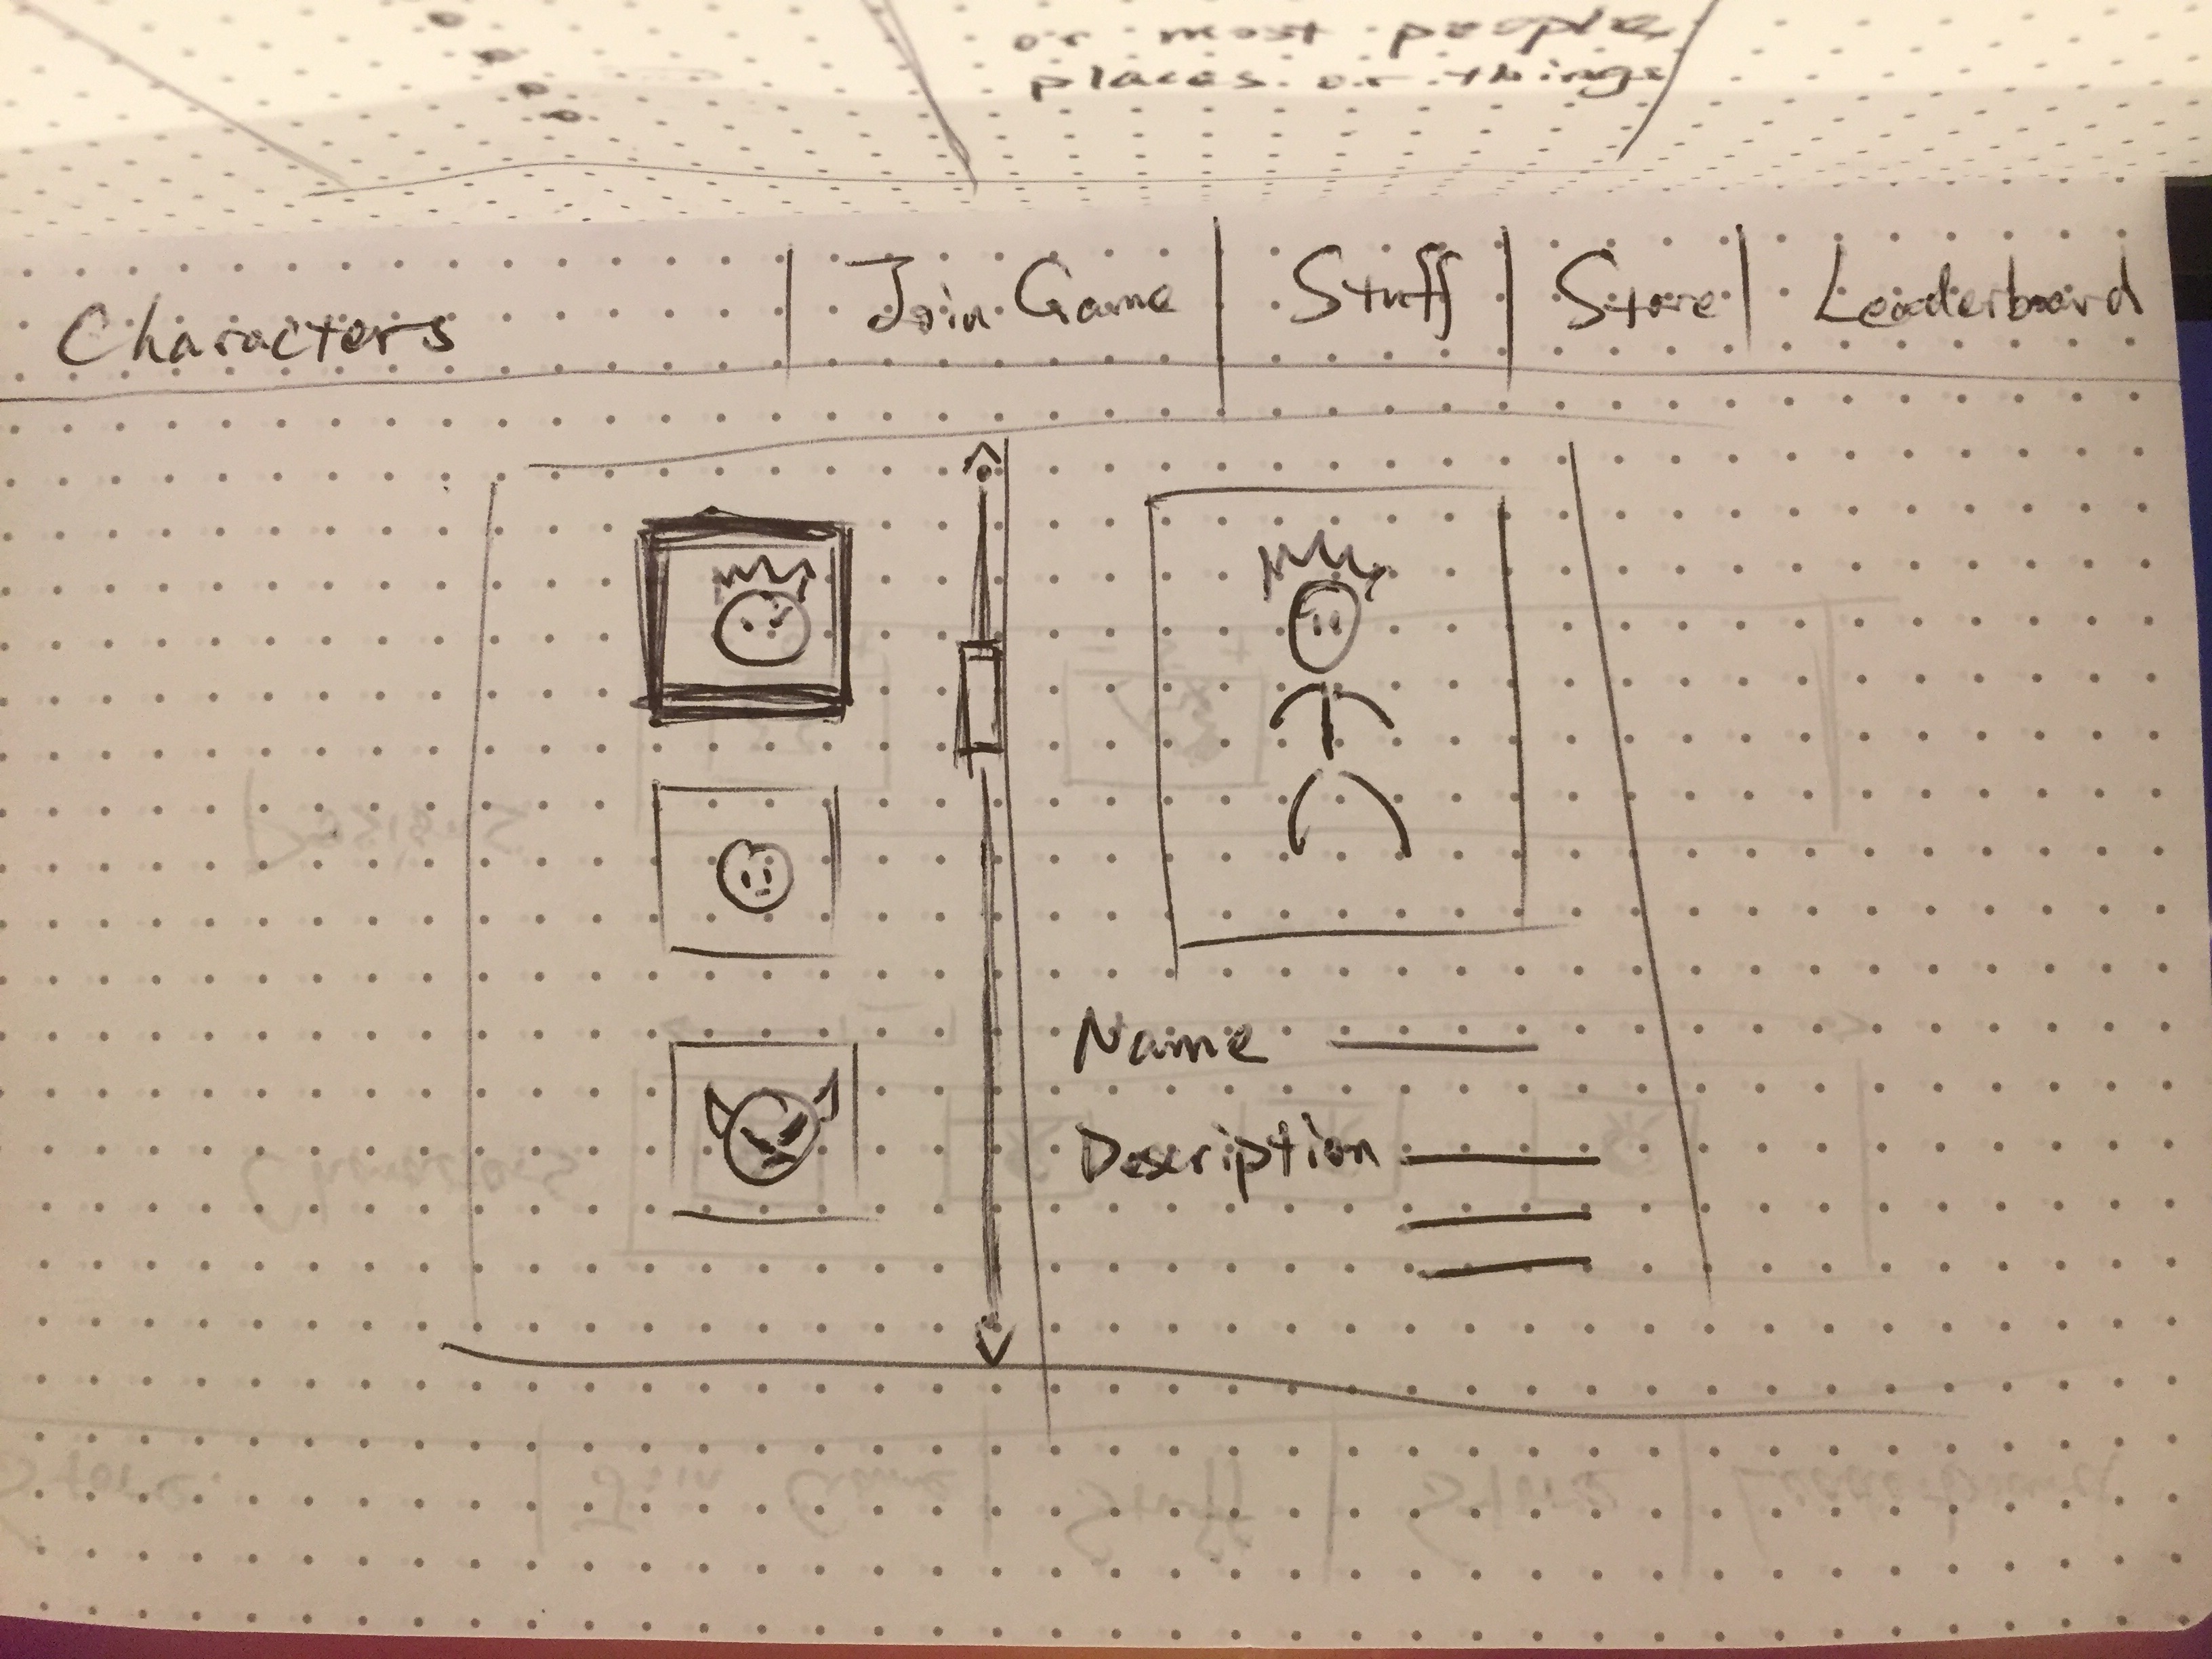 or most people
places or things
Characters | Join Game | Stuff | Store | Leaderboard
Name
Description